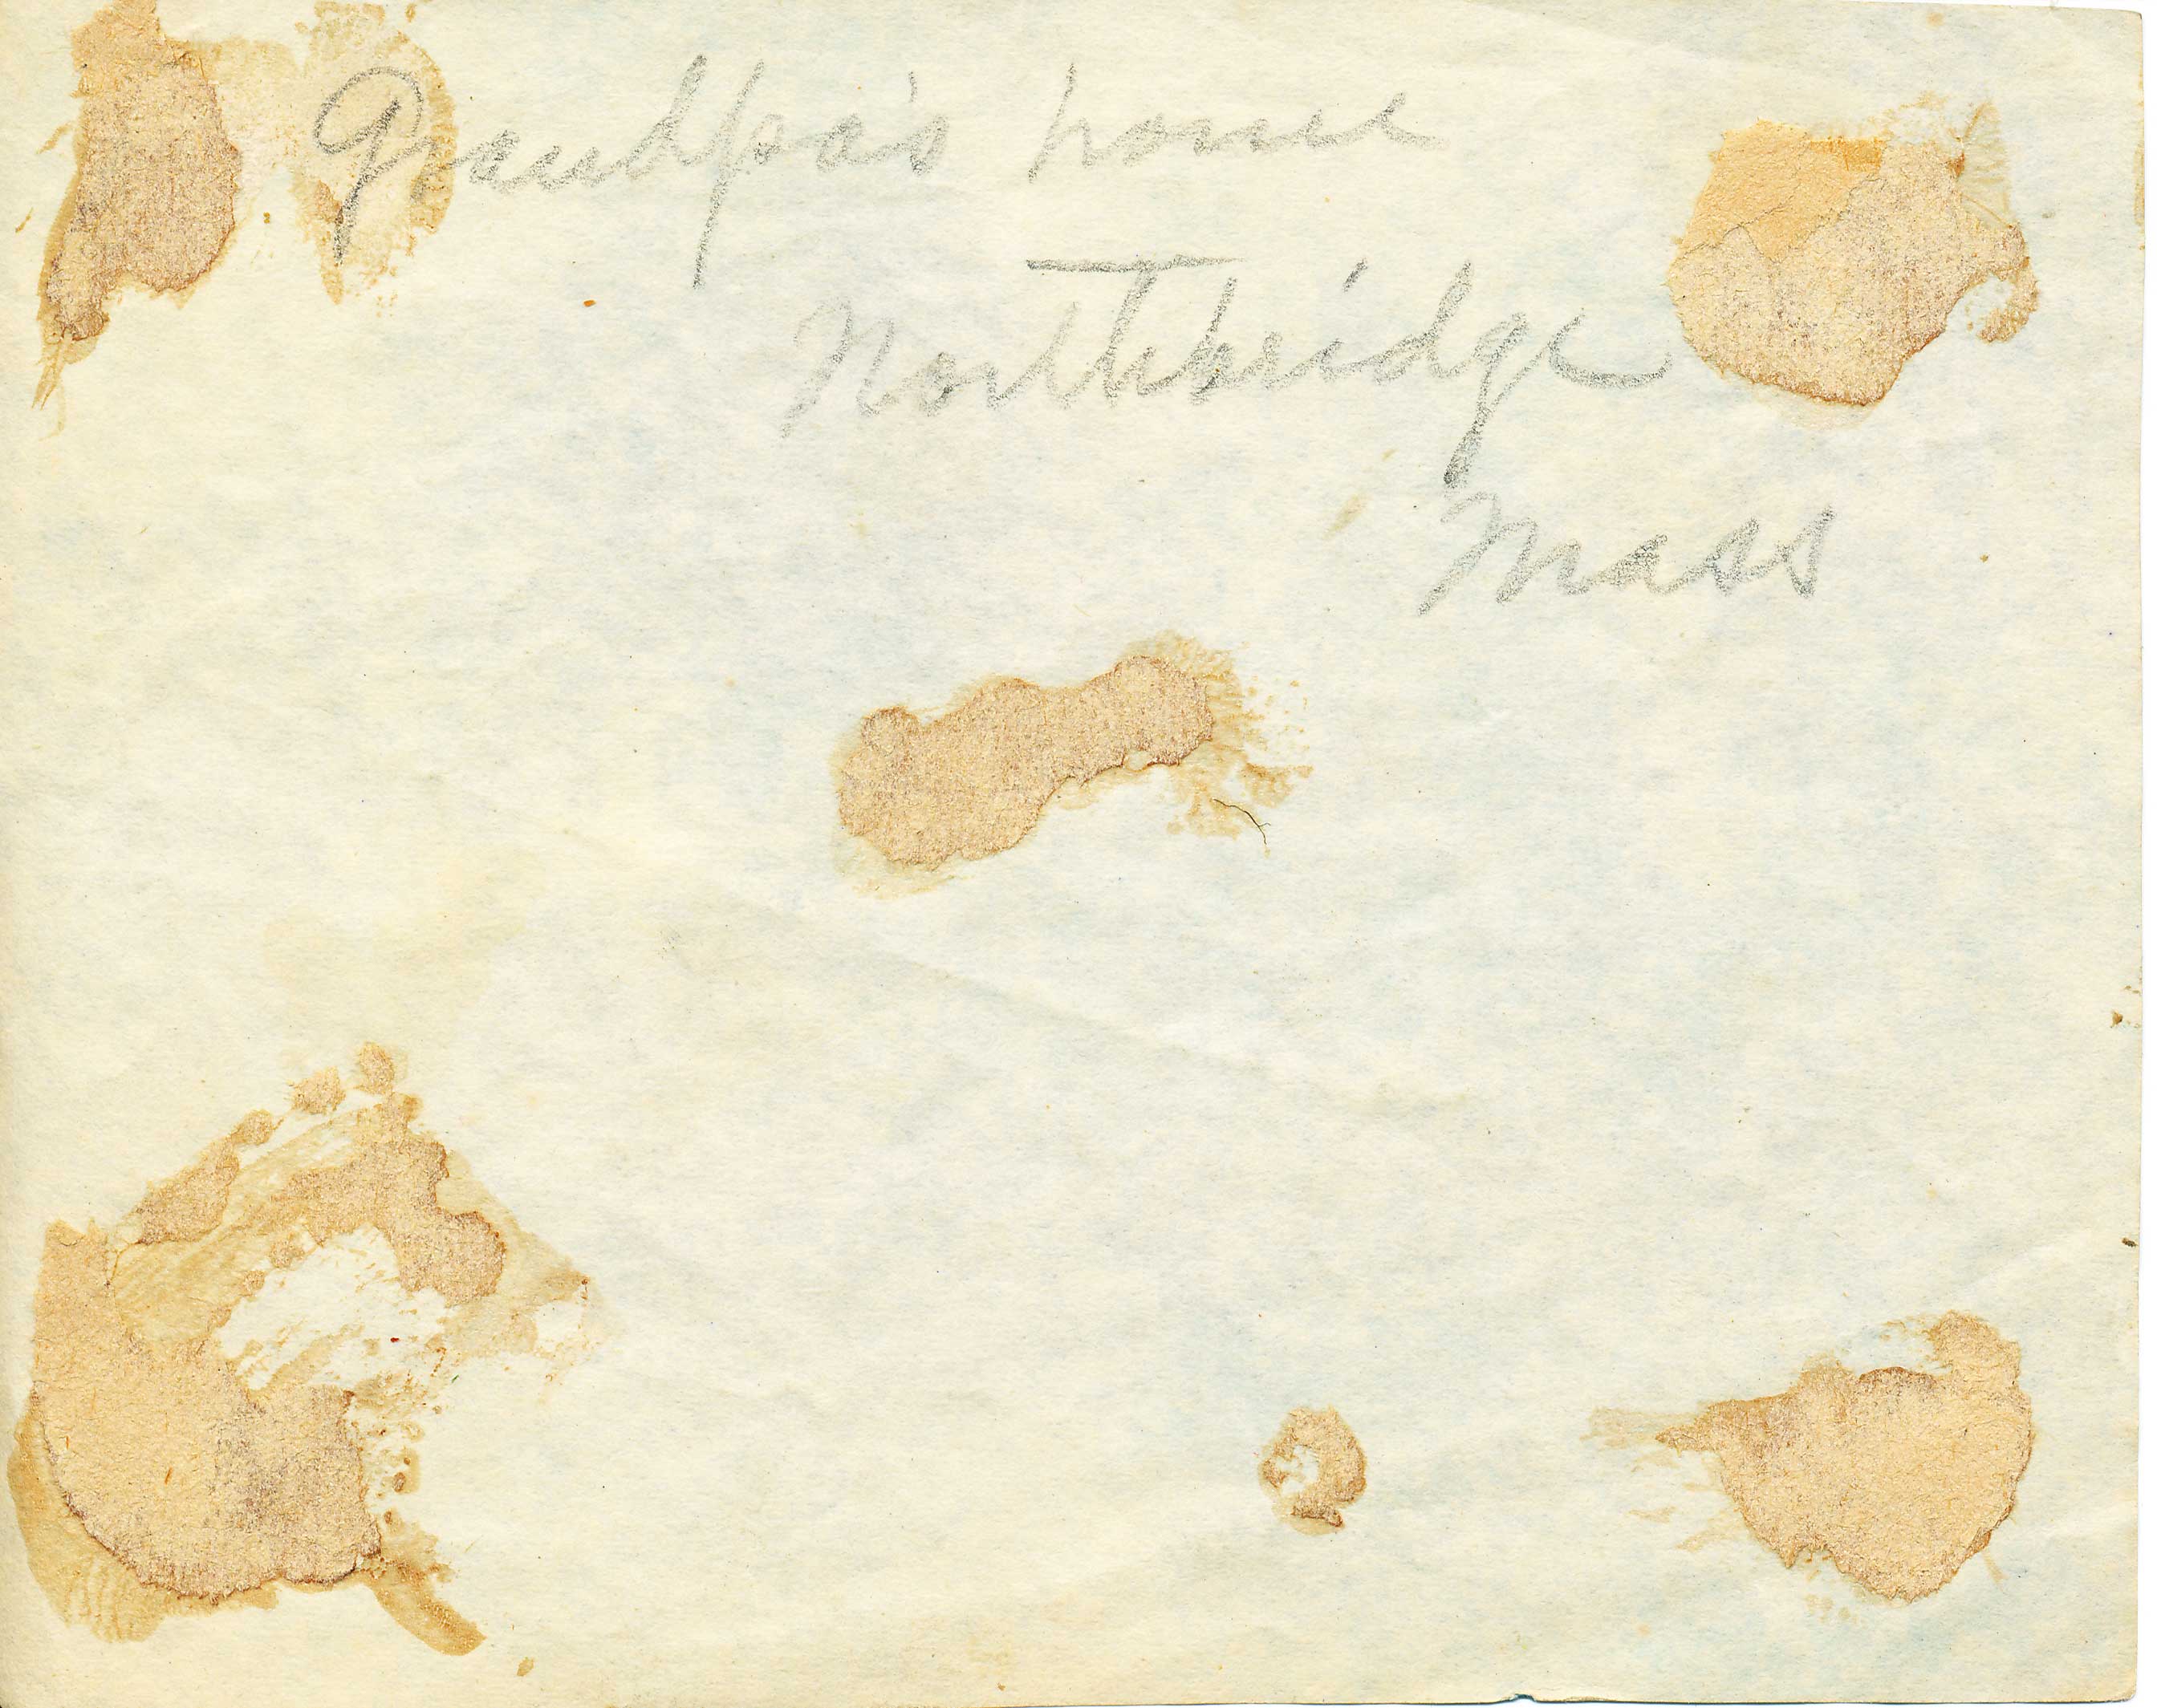 Grandpa's home
Northbridge
Mass